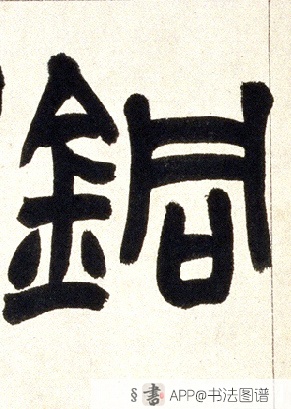 銅
§ 書 APP@书法图谱